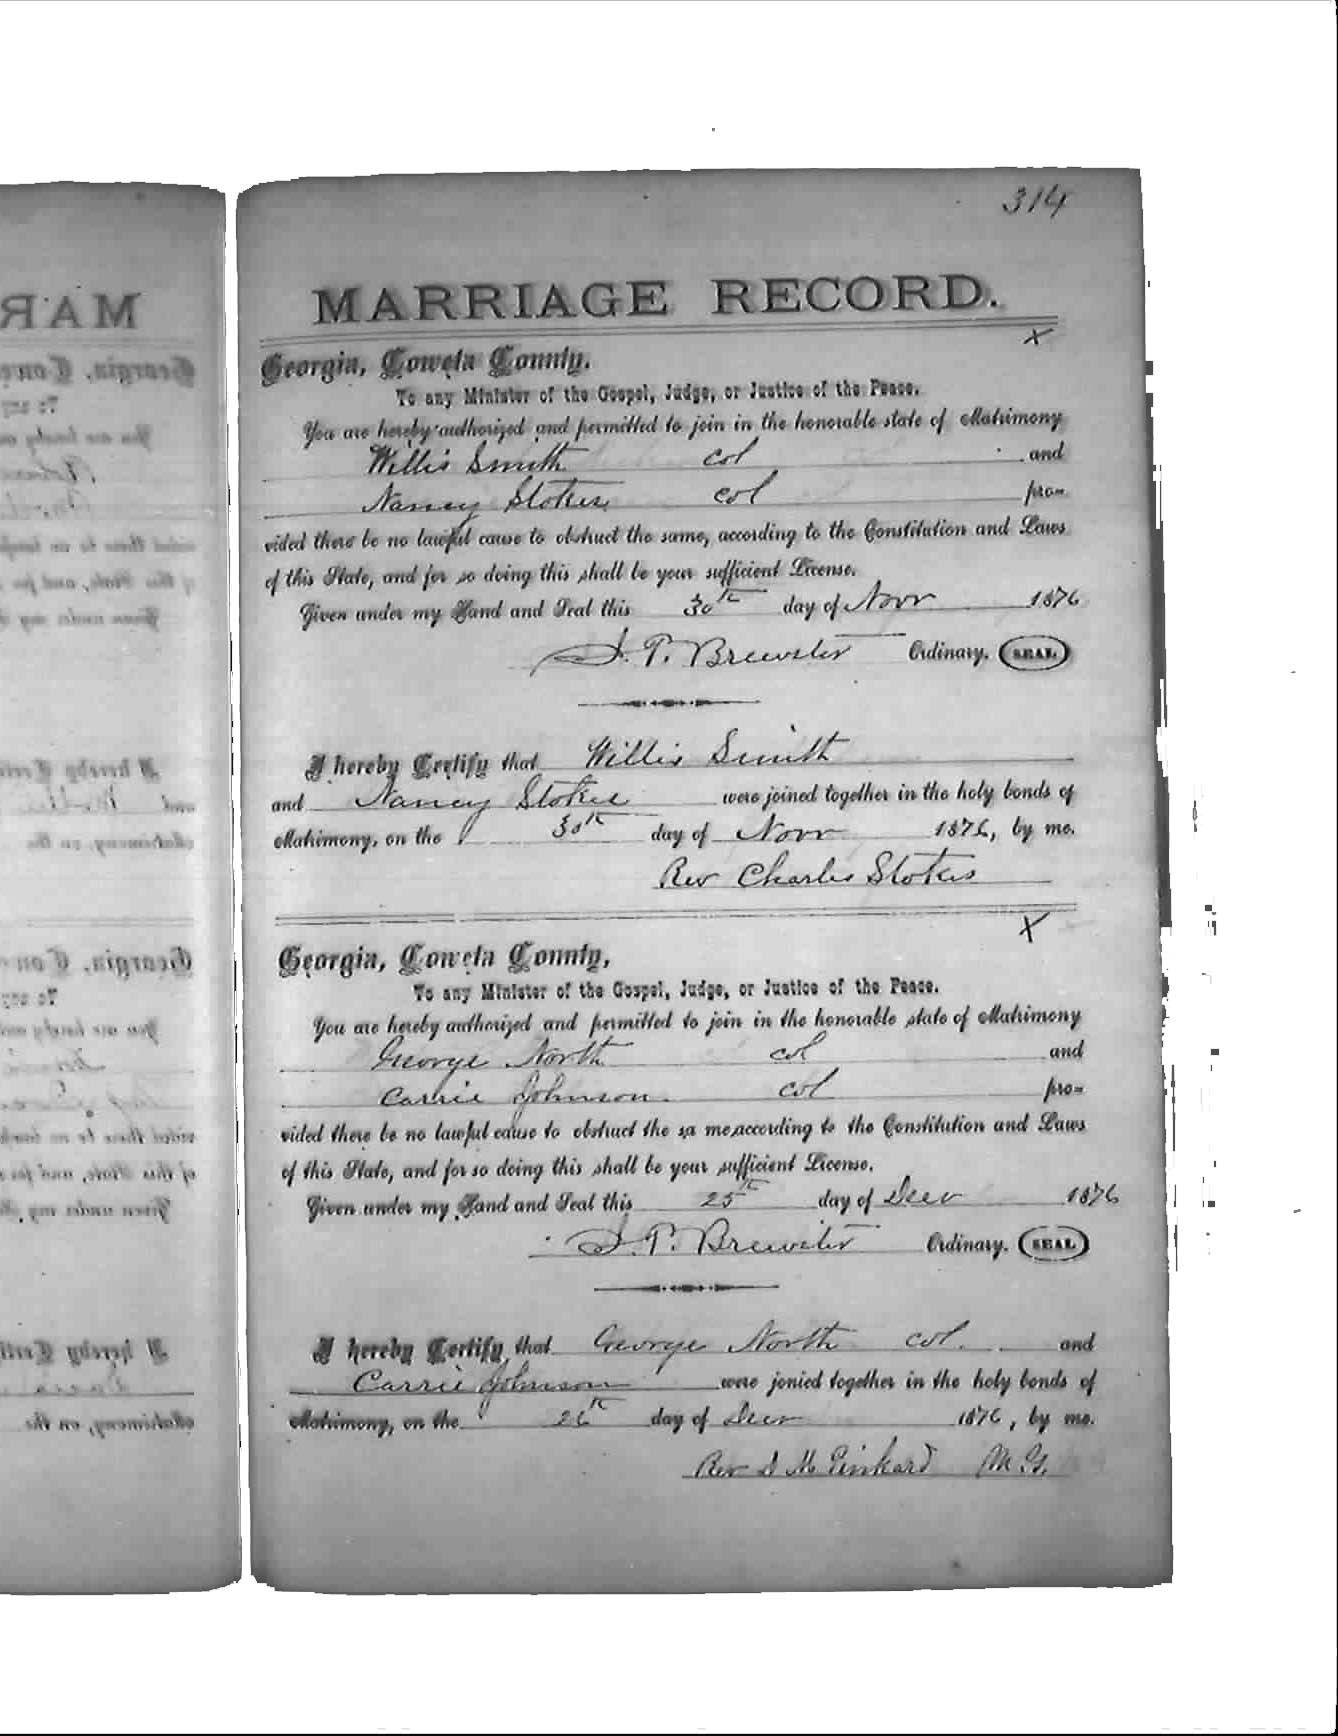 314
MARRIAGE RECORD.
x
Georgia, Coweta County.
To any Minister of the Gospel, Judge, or Justice of the Peace.
You are hereby authorized and permitted to join in the honorable state of Matrimony
Willis Smith col and
Nancy Stokes col pro-
vided there be no lawful cause to obstruct the same, according to the Constitution and Laws
of this State, and for so doing this shall be your sufficient License.
Given under my Hand and Seal this 30th day of Novr 1876
J. P. Brewster Ordinary. SEAL
I hereby Certify that Willis Smith
and Nancy Stokes were joined together in the holy bonds of
Matrimony, on the 30th day of Novr 1876, by me.
Rev Charles Stokes
X
Georgia, Coweta County,
To any Minister of the Gospel, Judge, or Justice of the Peace.
You are hereby authorized and permitted to join in the honorable state of Matrimony
George North col and
Carrie Johnson. col pro-
vided there be no lawful cause to obstruct the sa me, according to the Constitution and Laws
of this State, and for so doing this shall be your sufficient License.
Given under my Hand and Seal this 25th day of Decr 1876
J. P. Brewster Ordinary. SEAL
I hereby Certify that George North col. and
Carrie Johnson were jonied together in the holy bonds of
Matrimony, on the 26th day of Decr 1876, by me.
Rev D M Pinkard M. G.